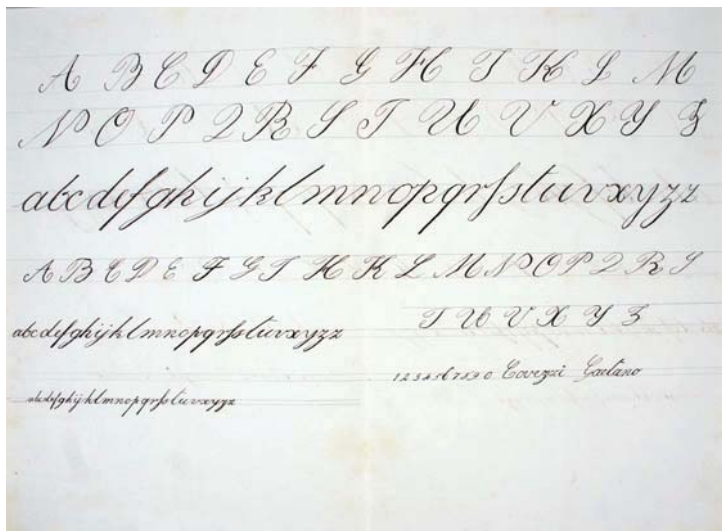 A B C D E F G H I K L M
N O P Q R S T U V X Y Z
abcdefghijklmnopqrſstuvxyzz
A B C D E F G I H K L M N O P Q R S
T U V X Y Z
abcdefghijklmnopqrſstuvxyzz
1 2 3 4 5 6 7 8 9 0 Gaetano
abcdefghijklmnopqrſstuvxyzz